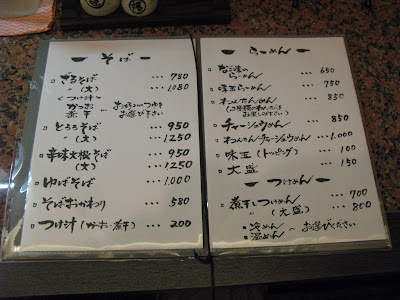 ー そば ー
ざるそば ・・・ 780
〃 (大) ・・・ 1080
くつけ汁
かつお
煮干
お好みのつゆを
お選び下さい
とろろそば ・・・ 950
〃 (大) ・・・ 1250
辛味大根そば ・・・ 950
(大) ・・・ 1250
ゆばそば ・・・ 1.000
そばおかわり ・・・ 580
つけ汁 (かつお・煮干) ・・・ 200
ー らーめん ー
らーめん ・・・ 650
味玉らーめん ・・・ 750
わんたんめん ・・・ 850
お選び下さい)
チャーシュウめん ・・・ 850
わんたんチャーシュウめん ・・・ 1.000
味玉 (トッピング) ・・・ 100
大盛 ・・・ 150
ー つけめん ー
煮干しつけめん ・・・ 700
〃 (大盛) ・・・ 800
冷めん
温めん
〜 お選びください